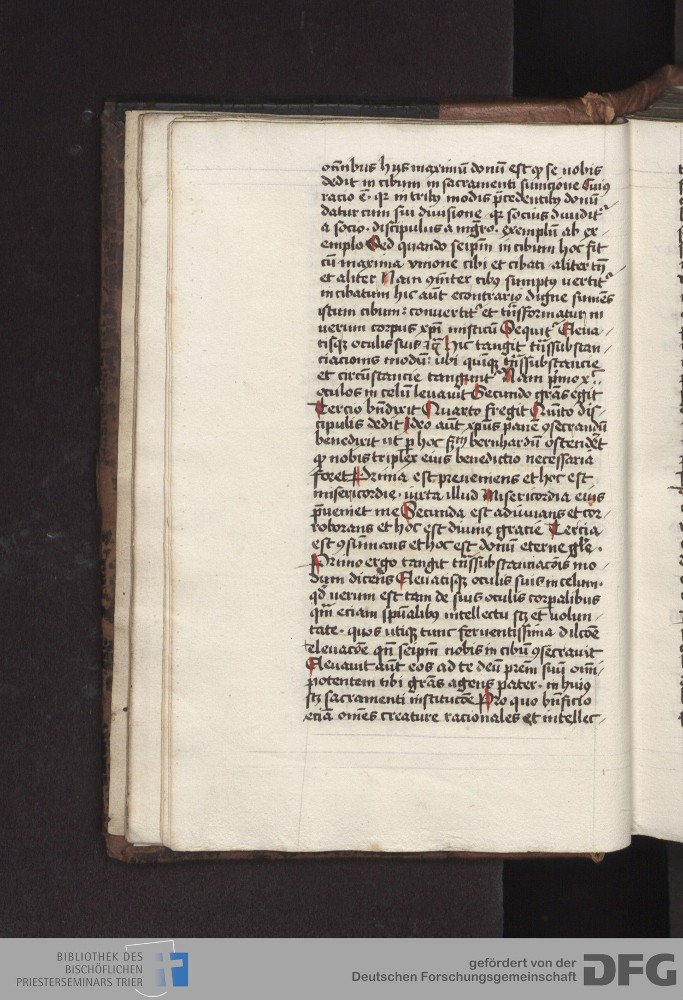 om̄ibus hijs maximū donū est ꝙ se nobis
dedit in cibum in sacramenti sumcione Cuiꝰ
racio ē · qꝛ in tribꝫ modis p̄cedentibꝫ donū
datur cum sui diuisione qꝛ socius diuidit᷑
a socio · discipulus a mgr̄o · exemplū ab ex-
emplo Sed quando seip̄m in cibum hoc fit
cū maxima vnione cibi et cibati aliter tn̄
et aliter Nam ꝯmiter cibꝰ sumptꝰ vertit᷑
in cibatum hic aūt econtrariꝰ digne sumēs
istum cibum : conuertit᷑ et trāsformatur in
verum corpus xp̄i misticū Sequit᷑ Eleua-
tisqꝫ oculis suis Hic tangit trāssubstan-
ciacionis modū : vbi quinqꝫ trāssubstancie
et circūstancie tangunt᷑ Nam p̄mo xꝰ
oculos in celū leuauit Secundo gr̄as egit
Tercio bn̄dixit Quarto fregit Quīto dis-
cipulis dedit Ideo aūt xp̄us panē ꝯsecrandū
benedixit vt ꝑ hoc sm̄ bernhardū ostenderet
ꝙ nobis triplex eius benedictio necessaria
foret Prima est preueniens et hoc est
misericordie · iuxta illud Misericordia eius
p̄ueniet me Secunda est adiuuans et cor-
roborans et hoc est diuine gracie Tercia
est ꝯsum̄ans et hoc est donū eterne gl̄e ·
Primo ergo tangit trāssubstanciacōis mo-
dum dicens Eleuatisqꝫ oculis suis in celum ·
qd̄ verum est tam de suis oculis corp̄alibus
qm̄ eciam spūalibꝰ intellectu scꝫ et volun-
tate · quos vtiqꝫ tunc feruentissima dilcōe
eleuacōe qn̄ seip̄m nobis in cibū ꝯsecrauit
Eleuauit aūt eos ad te deū prēm suū om̄i-
potentem tibi gr̄as agens pater · in huiꝰ
scꝫ sacramenti institucōe Pro quo bn̄ficio
eciā om̄es creature racionales et intellec-
BIBLIOTHEK DES
BISCHÖFLICHEN
PRIESTERSEMINARS TRIER
gefördert von der
Deutschen Forschungsgemeinschaft DFG